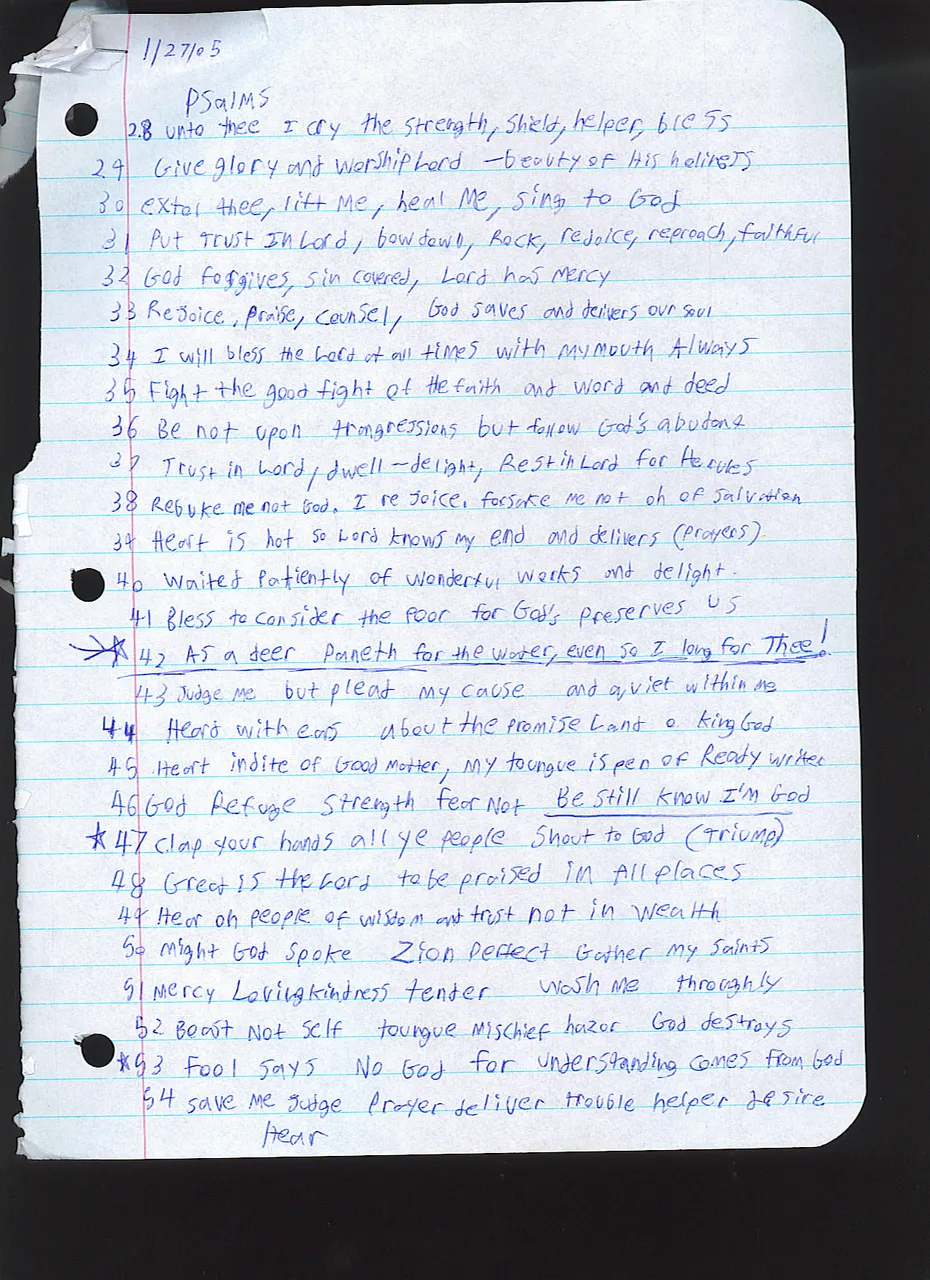 1/27/05
Psalms
28 unto thee I cry the strength, shield, helper, bless
29 Give glory and worship Lord - beauty of His holiness
30 extol thee, lift Me, heal Me, sing to God
31 Put trust In Lord, bow down, Rock, rejoice, reproach, faithful
32 God forgives, sin covered, Lord has Mercy
33 Rejoice, praise, counsel, God saves and delivers our soul
34 I will bless the Lord at all times with my mouth Always
35 Fight the good fight of the faith and word and deed
36 Be not upon trangressions but follow God's
37 Trust in Lord, dwell - delight, Rest in Lord for He rules
38 Rebuke me not God. I rejoice. forsake me not oh of salvation
39 Heart is hot so Lord knows my end and delivers (prayers)
40 Waited Patiently of wonderful works and delight.
41 Bless to consider the poor for God's preserves us
42 As a deer Paneth for the water, even so I long for Thee!
43 Judge me but plead my cause and quiet within me
44 Heard with ears about the promise Land o King God
45 Heart indite of Good matter, my toungue is pen of Ready writer
46 God Refuge strength fear Not Be still know I'm God
47 Clap your hands all ye people Shout to God (triump)
48 Great is the Lord to be praised in All places
49 Hear oh people of wisdom and trust not in wealth
50 might God spoke Zion perfect Gather my saints
51 Mercy Lovingkindness tender wash me throughly
52 Boast Not self toungue mischief hazor God destroys
53 Fool says No God for understanding comes from God
54 save me judge Prayer deliver trouble helper desire
Hear